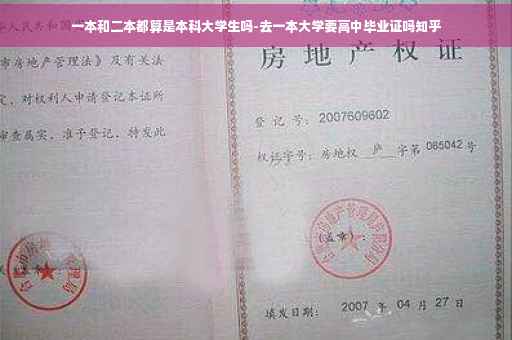 一本和二本都算是本科大学生吗-去一本大学要高中毕业证吗知乎
人民共和国
市房地产管理法》及有关法
定，对权利人申请登记本证所
审查属实，准予登记，特发此
房地产权证
登记号：2007609602
权证字号：房地权 庐 字第 065042 号
(盖章)：
填发日期：2007 年 04 月 27 日